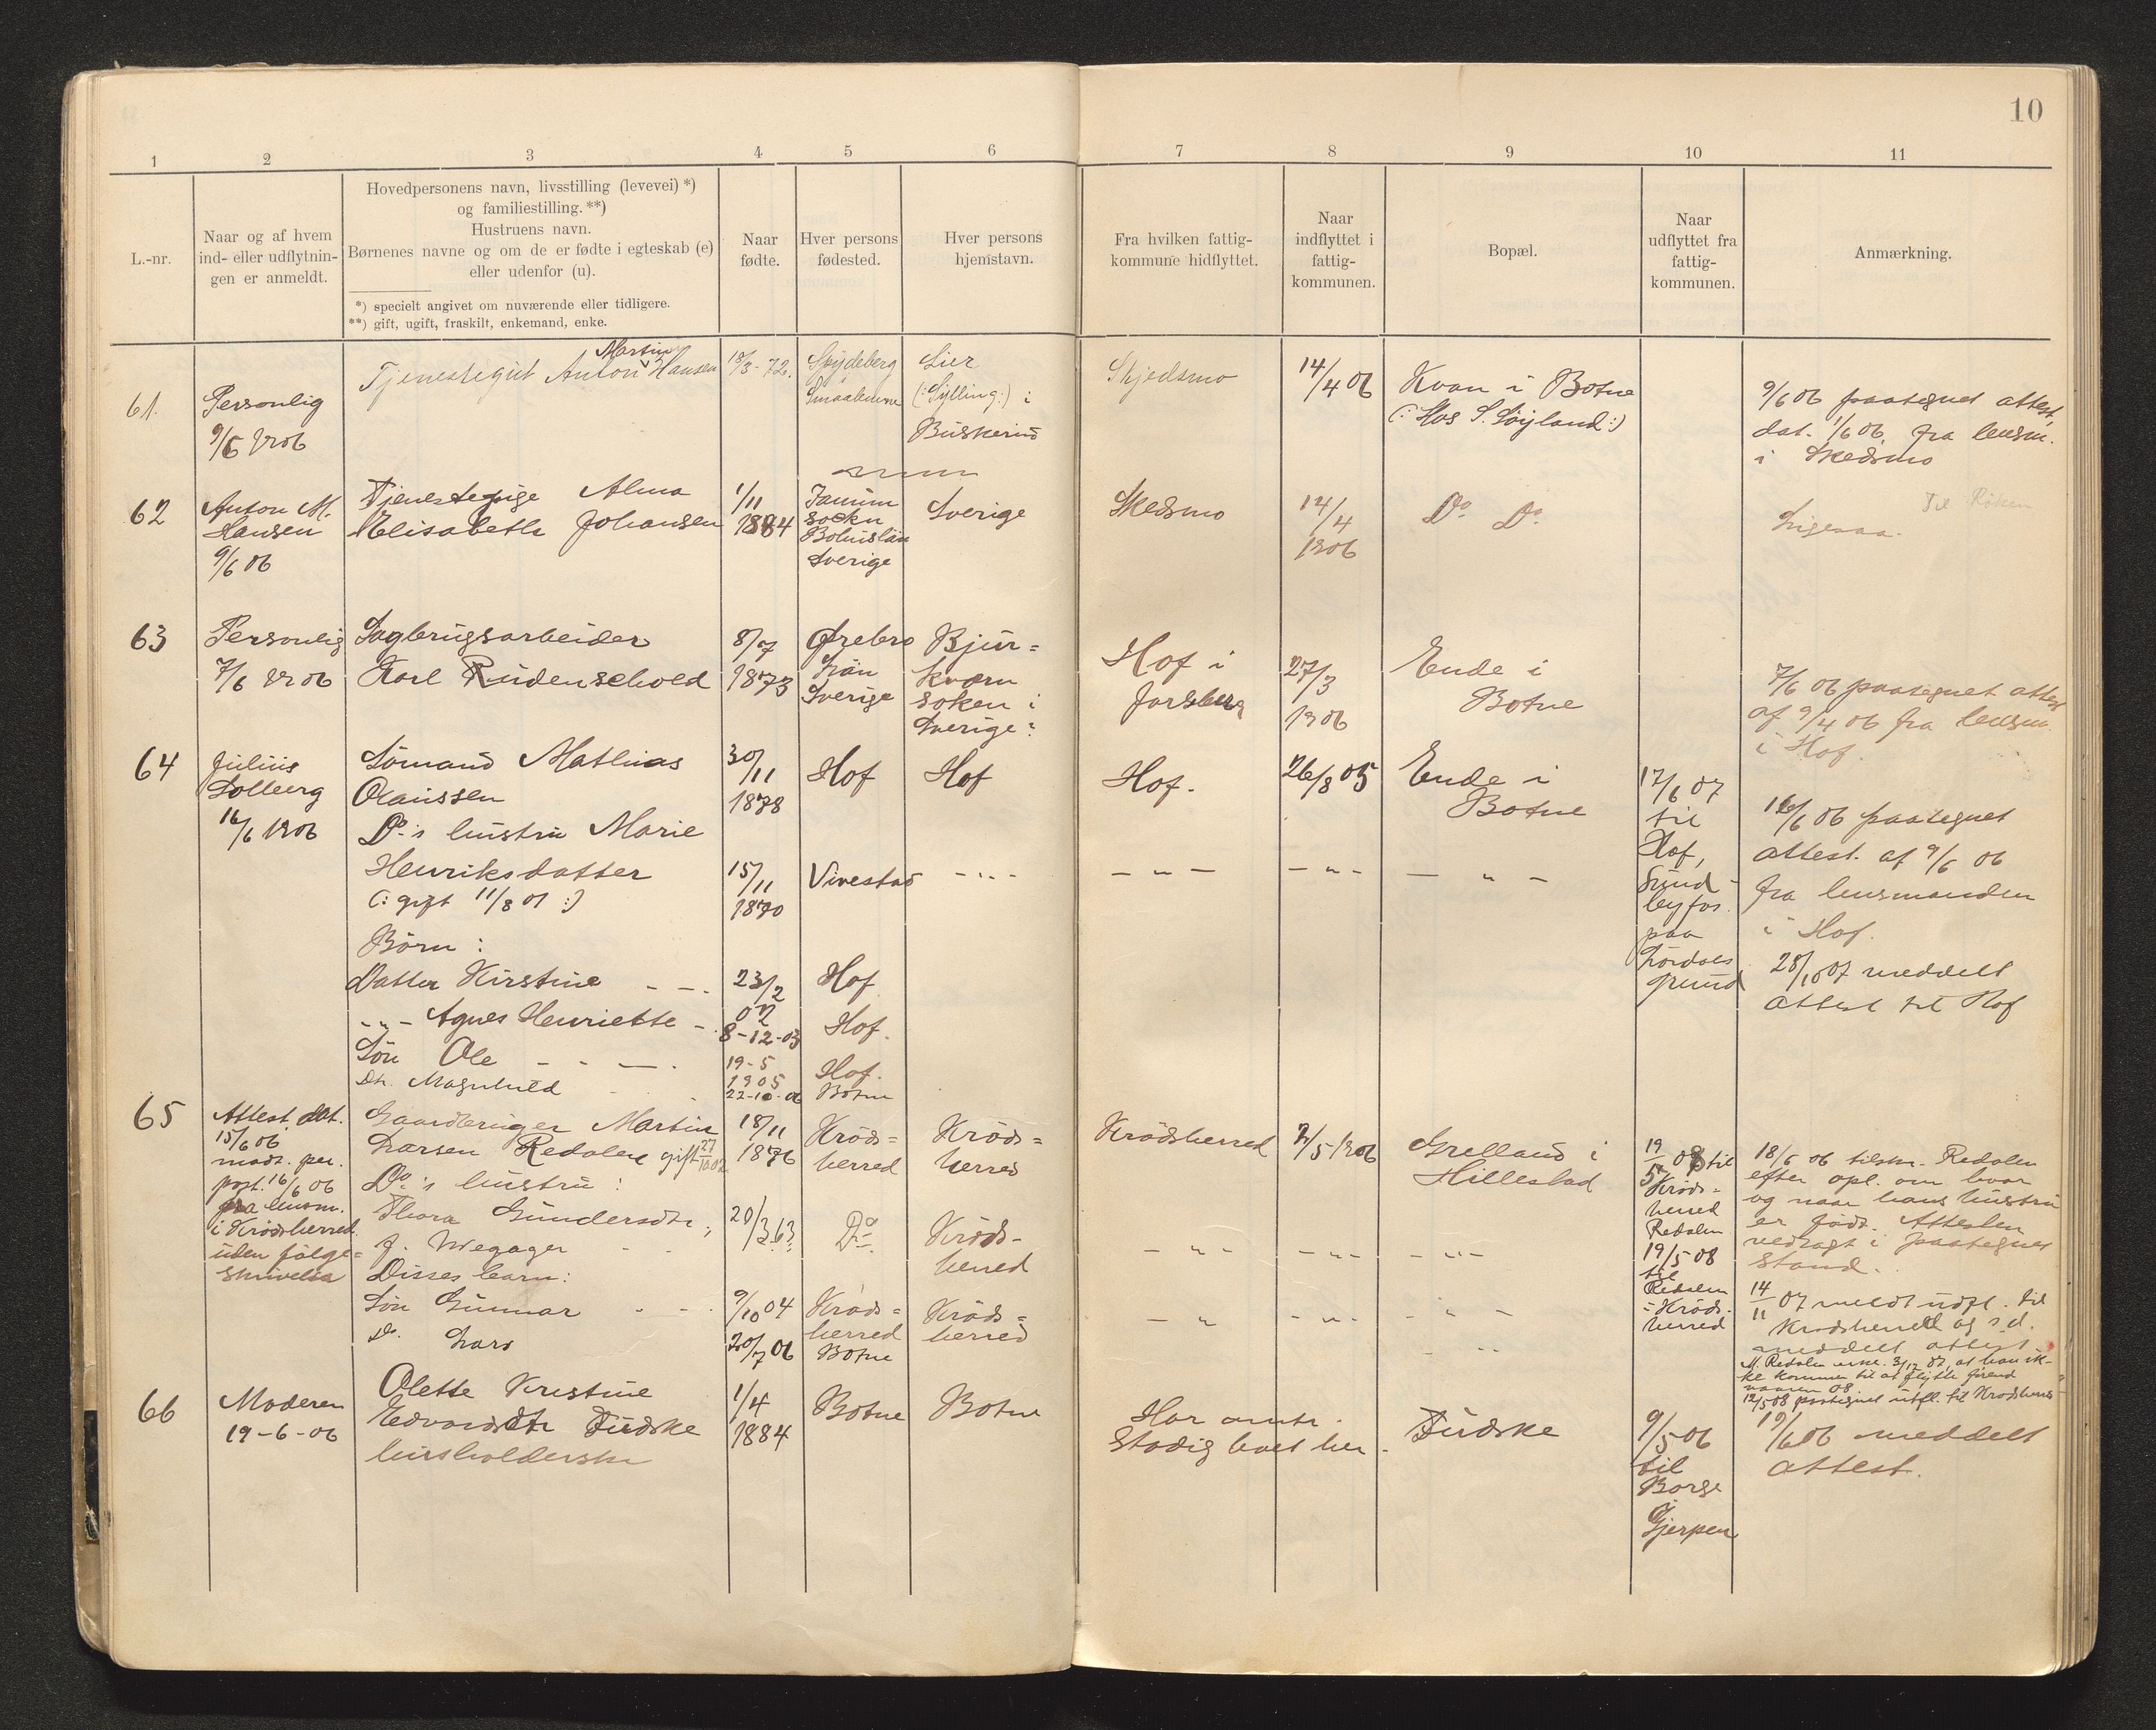 10
1 2 3 4 5 6 7 8 9 10 11
L.-nr.
Naar og af hvem
ind- eller udflytnin-
gen er anmeldt.
Hovedpersonens navn, livsstilling (levevei) *)
og familiestilling. **)
Hustruens navn.
Børnenes navne og om de er fødte i egteskab (e)
eller udenfor (u).
*) specielt angivet om nuværende eller tidligere.
**) gift, ugift, fraskilt, enkemand, enke.
Naar
fødte.
Hver persons
fødested.
Hver persons
hjemstavn.
Fra hvilken fattig-
kommune hidflyttet.
Naar
indflyttet i
fattig-
kommunen.
Bopæl.
Naar
udflyttet fra
fattig-
kommunen.
Anmærkning.
61.
Personlig
9/6 1906
Martin
Tjenestegut Anton Hansen
/3-72.
Spydeberg
Smaalenene
Lier
(:Sylling:) i
Buskerud
Skjedsmo
14/4 06
Kvan i Botne
(: Hos S. Søyland :)
9/6 06 paategnet attest
dat. 1/6 06 fra lensm.
i Skedsmo
62
Anton M.
Hansen
9/6 06
Tjenestepige Alma
Elisabeth Johansen
1/11
1884
Tanum
sockn
Bohuslän
Sverige
Sverige
Skedsmo
14/4
1906
Do. Do.
Til Røken
Ligesaa.
63
Personlig
7/6 1906
Sagbrugsarbeider
Karl Rudenschold
8/7
1873
Ørebro
Län
Sverige
Bjur=
kvarn
soken i
Sverige:
Hof i
Jarlsberg
27/3
1906
Ende i
Botne
7/6 06 paategnet attest
af 9/4 06 fra lensm.
i Hof.
64
Julius
Solberg
16/6 1906
Sømand Mathias
Olaussen
Do.'s hustru Marie
Henriksdatter
(: gift 11/8 01 :)
Børn :
Datter Kirstine - -.
-"- Agnes Henriette -.
Søn Ole - - - .
Dtr. Magnhild
30/11
1878
15/11
1870
23/2
02
8-12-03
19-5
1905
22-10-06
Hof
Vivestad
Hof
Hof.
Hof.
Botne
Hof
- " -
Hof.
- " -
26/8 05
- " -
Ende i
Botne
- " -
17/6 07
til
Hof,
Sund-
byfos
paa
Lørdals
grund
16/6 06 paategnet
attest. af 9/6 06
fra lensmanden
i Hof.
28/10 07 meddelt
attest til Hof
65
Attest. dat.
15/6 06
modt. per.
post. 16/6 06
fra lensm.
i Krødsherred
uden følge=
skrivelse
Gaardbruger Martin
Larsen Redalen gift 27/10 02
Do.'s hustru :
Thora Gundersdtr,
f. Wegager
Disses barn:
Søn Gunnar - - .
Do. Lars
18/11
1876
20/3 63
9/10 04
20/7 06
Krøds=
herred
Do.
Krøds=
herred
Botne
Krøds=
herred
Krøds-
herred
Krøds=
herred
Krødsherred
- " -
- " -
2/5 1906
- " -
- " -
Grelland i
Hillestad
- " -
- " -
- " -
19/5 08 til
Krøds-
herred
Redalen
19/5 08
til
Redalen
i Krøds-
herred
18/6 06 tilskr. Redalen
efter opl. om hvor
og naar hans hustru
er født. Attesten
vedlagt i paategnet
stand.
14/11 07 meldt udfl. til
Krødsherred og s.d.
meddelt attest
M. Redalen erkl. 3/12 07, at han ik-
ke kommer til at flytte førend
vaaren 08
19/5 08 paategnet utfl. til Krødsherred
66
Moderen
19-6-06
Olette Kristine
Edvardsdtr Tudske
husholderske
1/4
1884
Botne
Botne
Har amtr.
Stadig boet her.
Tudske
9/5 06
til
Borge
Gjerpen
19/6 06 meddelt
attest.